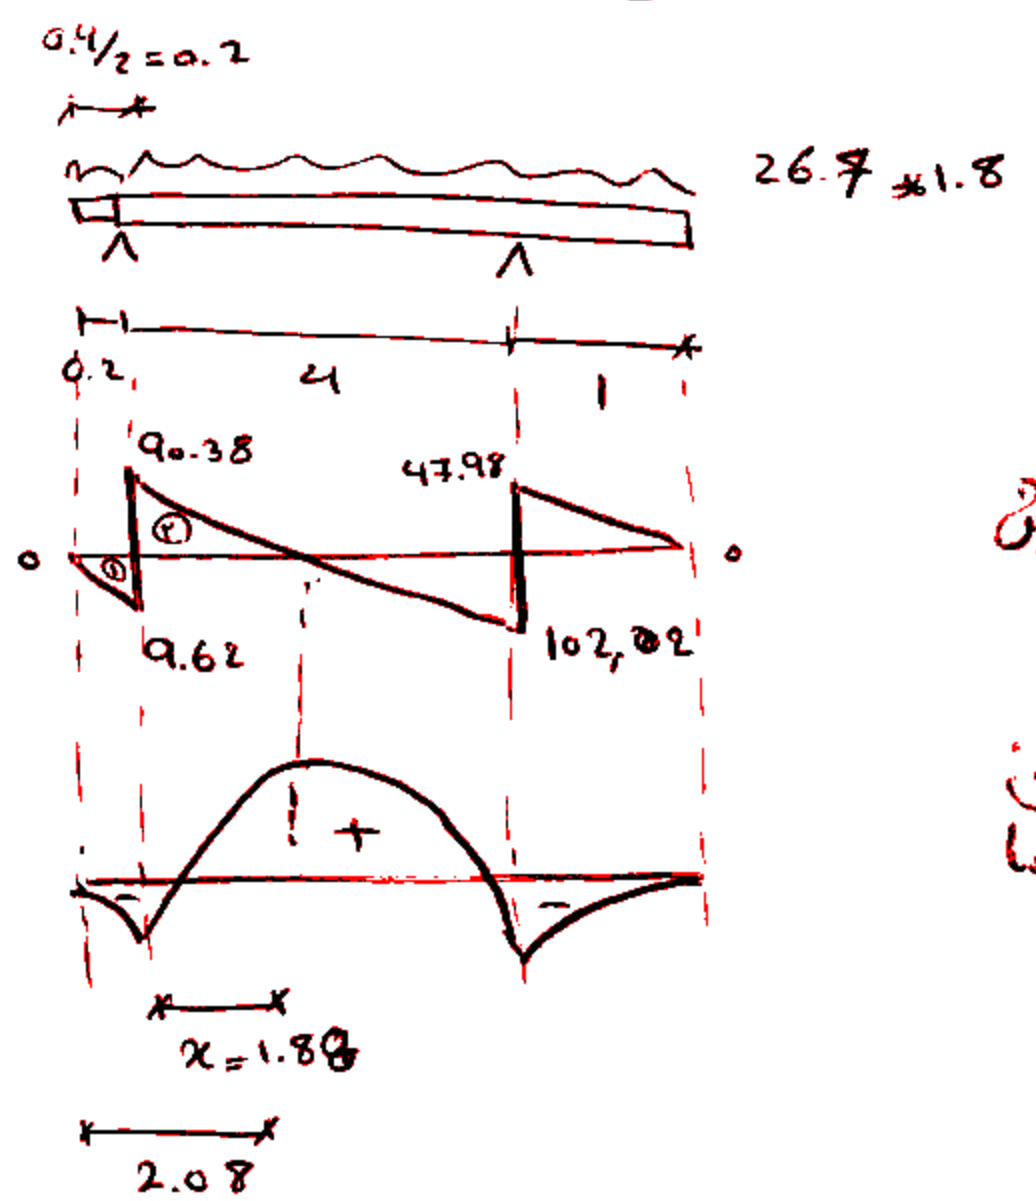 0.4/2 = 0.2
26.7 * 1.8
0.2 4 1
90.38
47.98
0
②
①
0
9.62
102,02
+
-
-
x = 1.88
2.08